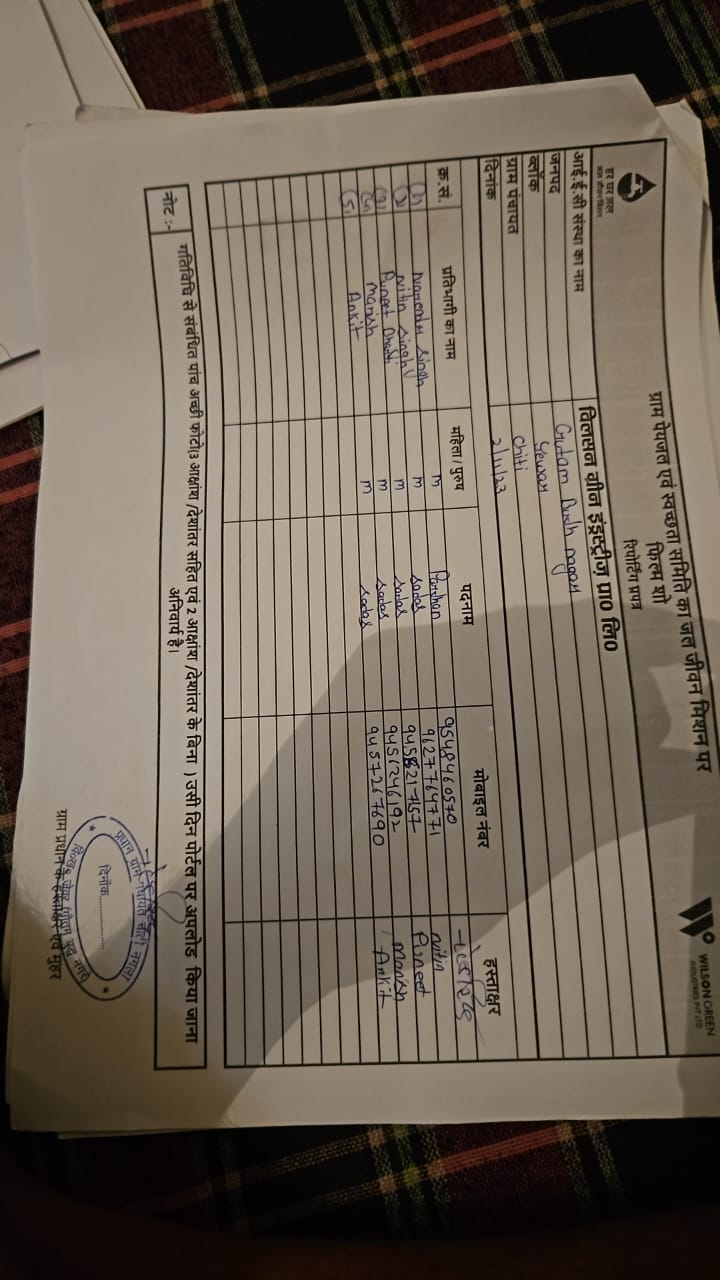 हर घर जल
जल जीवन मिशन
ग्राम पेयजल एवं स्वच्छता समिति का जल जीवन मिशन पर
फिल्म शो
रिपोर्टिंग प्रपत्र
WILSON GREEN
INDUSTRIES PVT LTD
आई.ई.सी संस्था का नाम विलसन ग्रीन इंड्रस्ट्रीज़ प्रा0 लि0
जनपद Gutam Budh nagar
ब्लॉक Jewar
ग्राम पंचायत Chiti
दिनांक 2/11/23
क्र.सं. प्रतिभागी का नाम महिला/पुरुष पदनाम मोबाइल नंबर हस्ताक्षर
(1) Narendra Singh m Pardhan 9548460570
(2) Nitin Singh m sadas 9627764771 nitin
(3) Puneet m sadas 9458217157 Puneet
(4) Manish m sadas 9456246192 Manish
(5) Ankit m sadas 9457267690 Ankit
नोट :- गतिविधि से संबंधित पांच अच्छी फोटो(3 आक्षांश /देशांतर सहित एवं 2 आक्षांश /देशांतर के बिना ) उसी दिन पोर्टल पर अपलोड किया जाना
अनिवार्य है।
प्रधान ग्राम पंचायत
दिनाँक
ग्राम प्रधान के हस्ताक्षर एवं मुहर